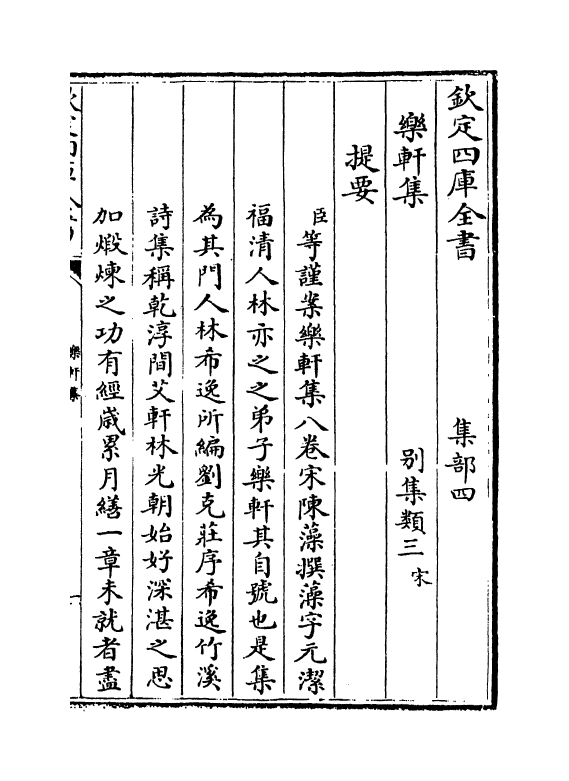 欽定四庫全書　集部四
樂軒集　別集類三宋
提要
臣等謹案樂軒集八卷宋陳藻撰藻字元潔
福清人林亦之之弟子樂軒其自號也是集
為其門人林希逸所編劉克莊序希逸竹溪
詩集稱乾淳間艾軒林光朝始好深湛之思
加煅煉之功有經歳累月繕一章未就者盡
樂軒集